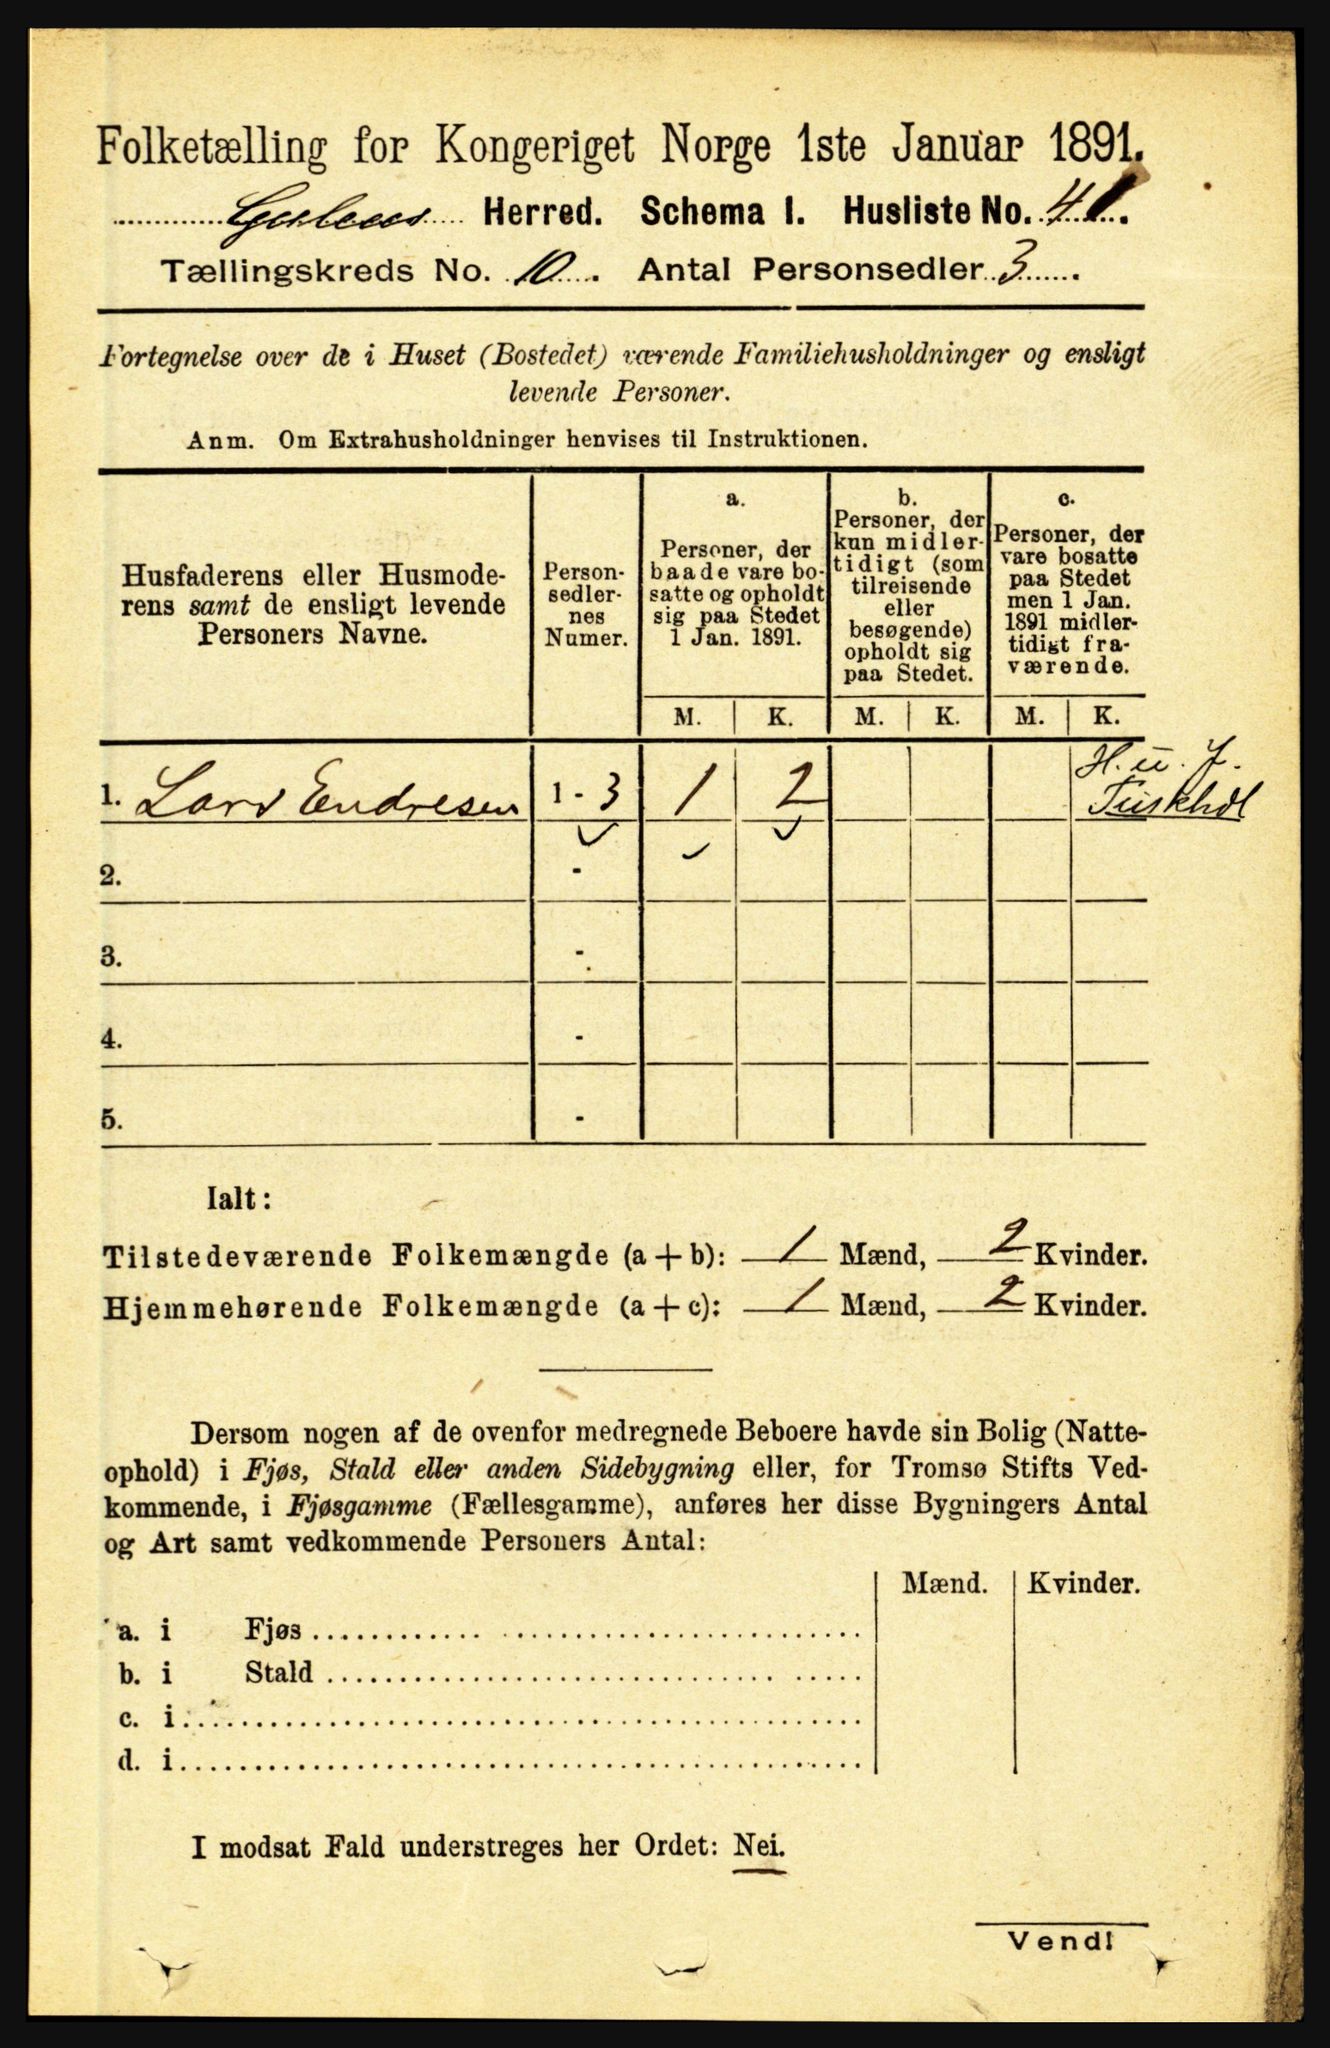 Folketælling for Kongeriget Norge 1ste Januar 1891.
Gulens Herred. Schema I. Husliste No. 41.
Tællingskreds No. 10. Antal Personsedler 3.
Fortegnelse over de i Huset (Bostedet) værende Familiehusholdninger og ensligt
levende Personer.
Anm. Om Extrahusholdninger henvises til Instruktionen.
Husfaderens eller Husmode-
rens samt de ensligt levende
Personers Navne.
Person-
sedler-
nes
Numer.
a.
Personer, der
baade vare bo-
satte og opholdt
sig paa Stedet
1 Jan. 1891.
b.
Personer, der
kun midler-
tidigt (som
tilreisende
eller
besøgende)
opholdt sig
paa Stedet.
c.
Personer, der
vare bosatte
paa Stedet
men 1 Jan.
1891 midler-
tidigt fra-
værende.
M. K. M. K. M. K.
H. u. J.
1. Lars Endresen 1 - 3 1 2
2. -
3. -
4. -
5. -
Ialt:
Tilstedeværende Folkemængde (a + b): 1 Mænd, 2 Kvinder.
Hjemmehørende Folkemængde (a + c): 1 Mænd, 2 Kvinder.
Dersom nogen af de ovenfor medregnede Beboere havde sin Bolig (Natte-
ophold) i Fjøs, Stald eller anden Sidebygning eller, for Tromsø Stifts Ved-
kommende, i Fjøsgamme (Fællesgamme), anføres her disse Bygningers Antal
og Art samt vedkommende Personers Antal:
Mænd. Kvinder.
a. i Fjøs
b. i Stald
c. i
d. i
I modsat Fald understreges her Ordet: Nei.
Vend!